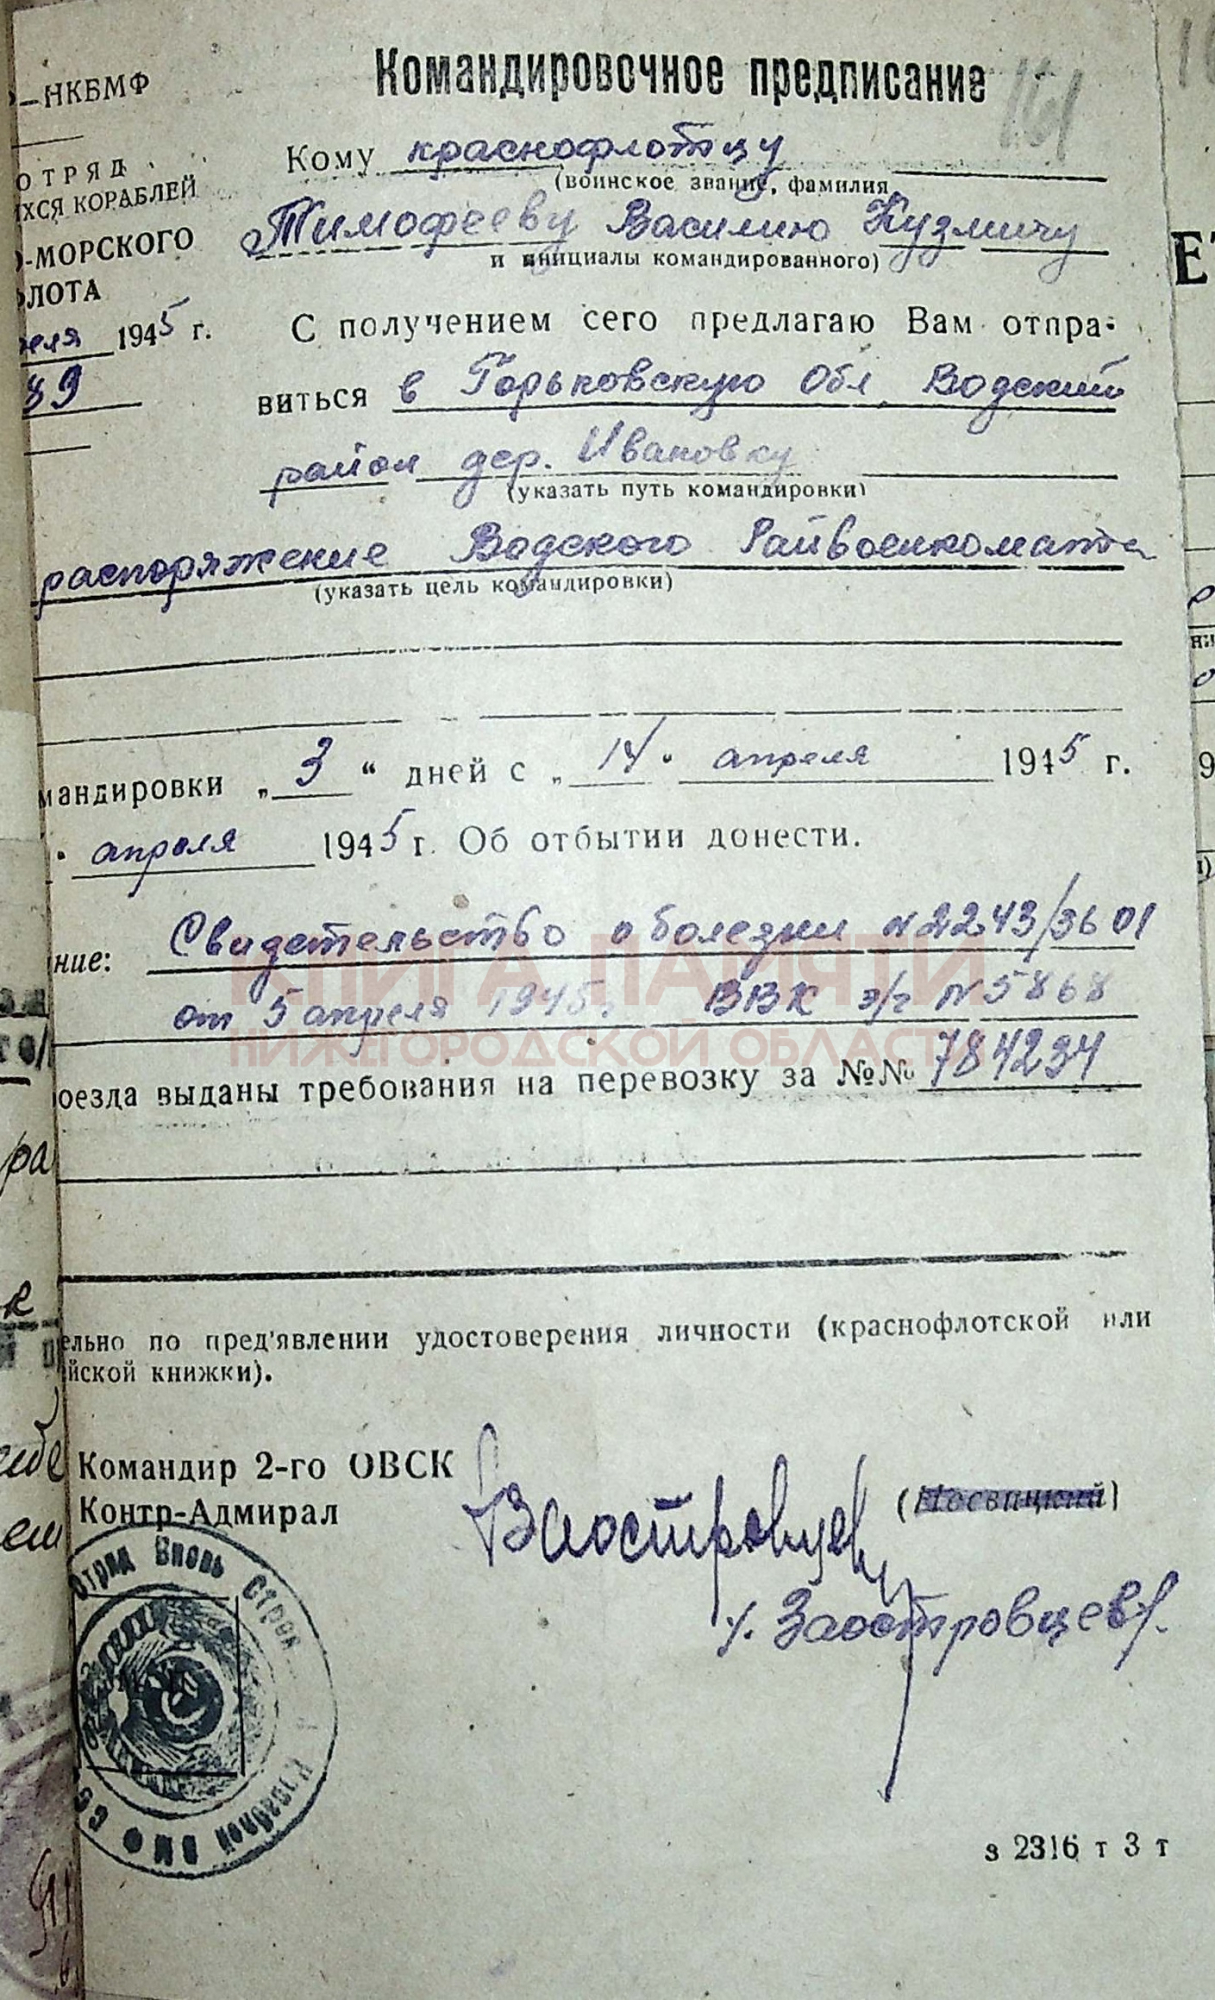 Командировочное предписание
161
–НКБМФ
ОТРЯД
ХСЯ КОРАБЛЕЙ
-МОРСКОГО
ЛОТА
еля 1945 г.
89
Кому краснофлотцу
(воинское звание, фамилия
Тимофееву Василию Кузмичу
и инициалы командированного)
С получением сего предлагаю Вам отпра-
виться в Горьковскую Обл. Водский
район дер. Ивановку
(указать путь командировки)
распоряжение Водского Райвоенкомата
(указать цель командировки)
мандировки „3“ дней с „14" апреля 1945 г.
" апреля 1945 г. Об отбытии донести.
ние: Свидетельство о болезни N2243/3601
от 5 апреля 1945г. ВВК э/г N5868
КНИГА ПАМЯТИ
НИЖЕГОРОДСКОЙ ОБЛАСТИ
оезда выданы требования на перевозку за №№ 784234
ельно по пред'явлении удостоверения личности (краснофлотской или
йской книжки).
Командир 2-го ОВСК
Контр-Адмирал
Заостровцев
(Заостровцев).
Отряд Вновь Строю
Кораблей ВМФ СС
з 2316 т 3 т